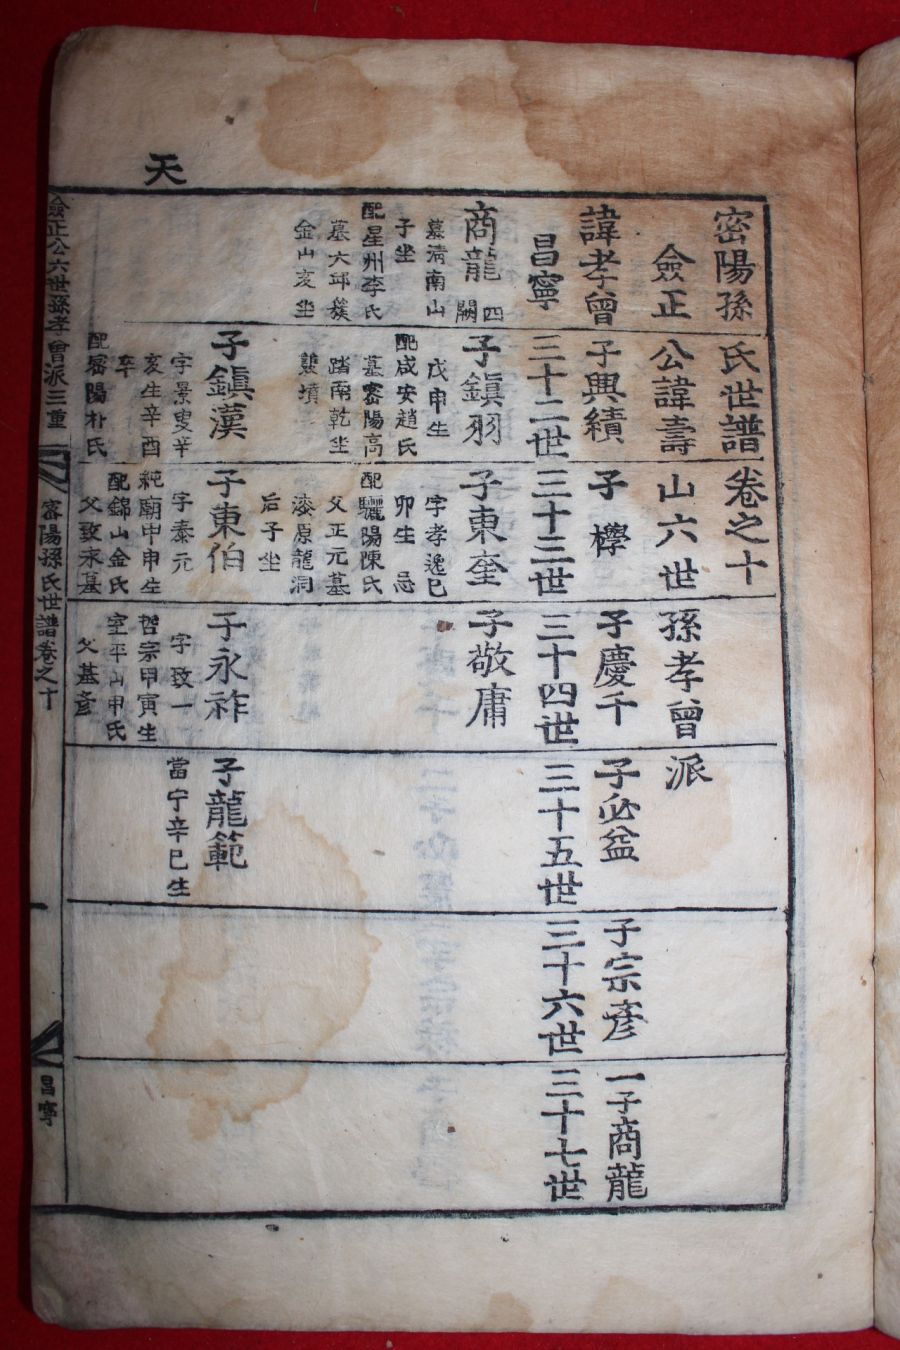 天
密陽孫氏世譜卷之十
僉正公諱壽山六世孫孝曾派
諱孝曾
子興績
子㰒
子慶千
子必益
子宗彥
一子商龍
昌寧
三十二世
三十三世
三十四世
三十五世
三十六世
三十七世
商龍
四闕
墓淸南山
子坐
配星州李氏
墓六邱簇
金山亥坐
子鎭羽
戊申生
配咸安趙氏
墓密陽高
踏南乾坐
雙墳
子東奎
字孝逸巳
卯生 忌
配驪陽陳氏
父正元墓
漆原龍洞
后子坐
子敬庸
子鎭漢
字景叟辛
亥生辛酉
卒
配密陽朴氏
子東伯
字泰元
純廟甲申生
配錦山金氏
父致永墓
子永祚
字致一
哲宗甲寅生
室平山申氏
父基彥
子龍範
當宁辛巳生
僉正公六世孫孝曾派三重
密陽孫氏世譜卷之十
昌寧